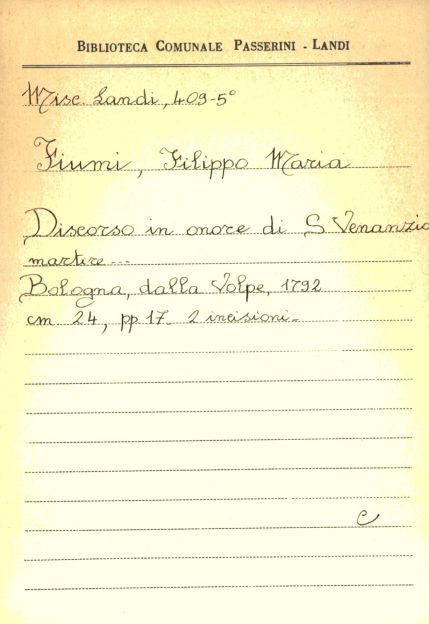 BIBLIOTECA COMUNALE PASSERINI - LANDI
Misc. Landi, 409-5°
Fiumi, Filippo Maria
Discorso in onore di S. Venanzio
martire...
Bologna, dalla Volpe, 1792
cm 24, pp 17. 2 incisioni.
C